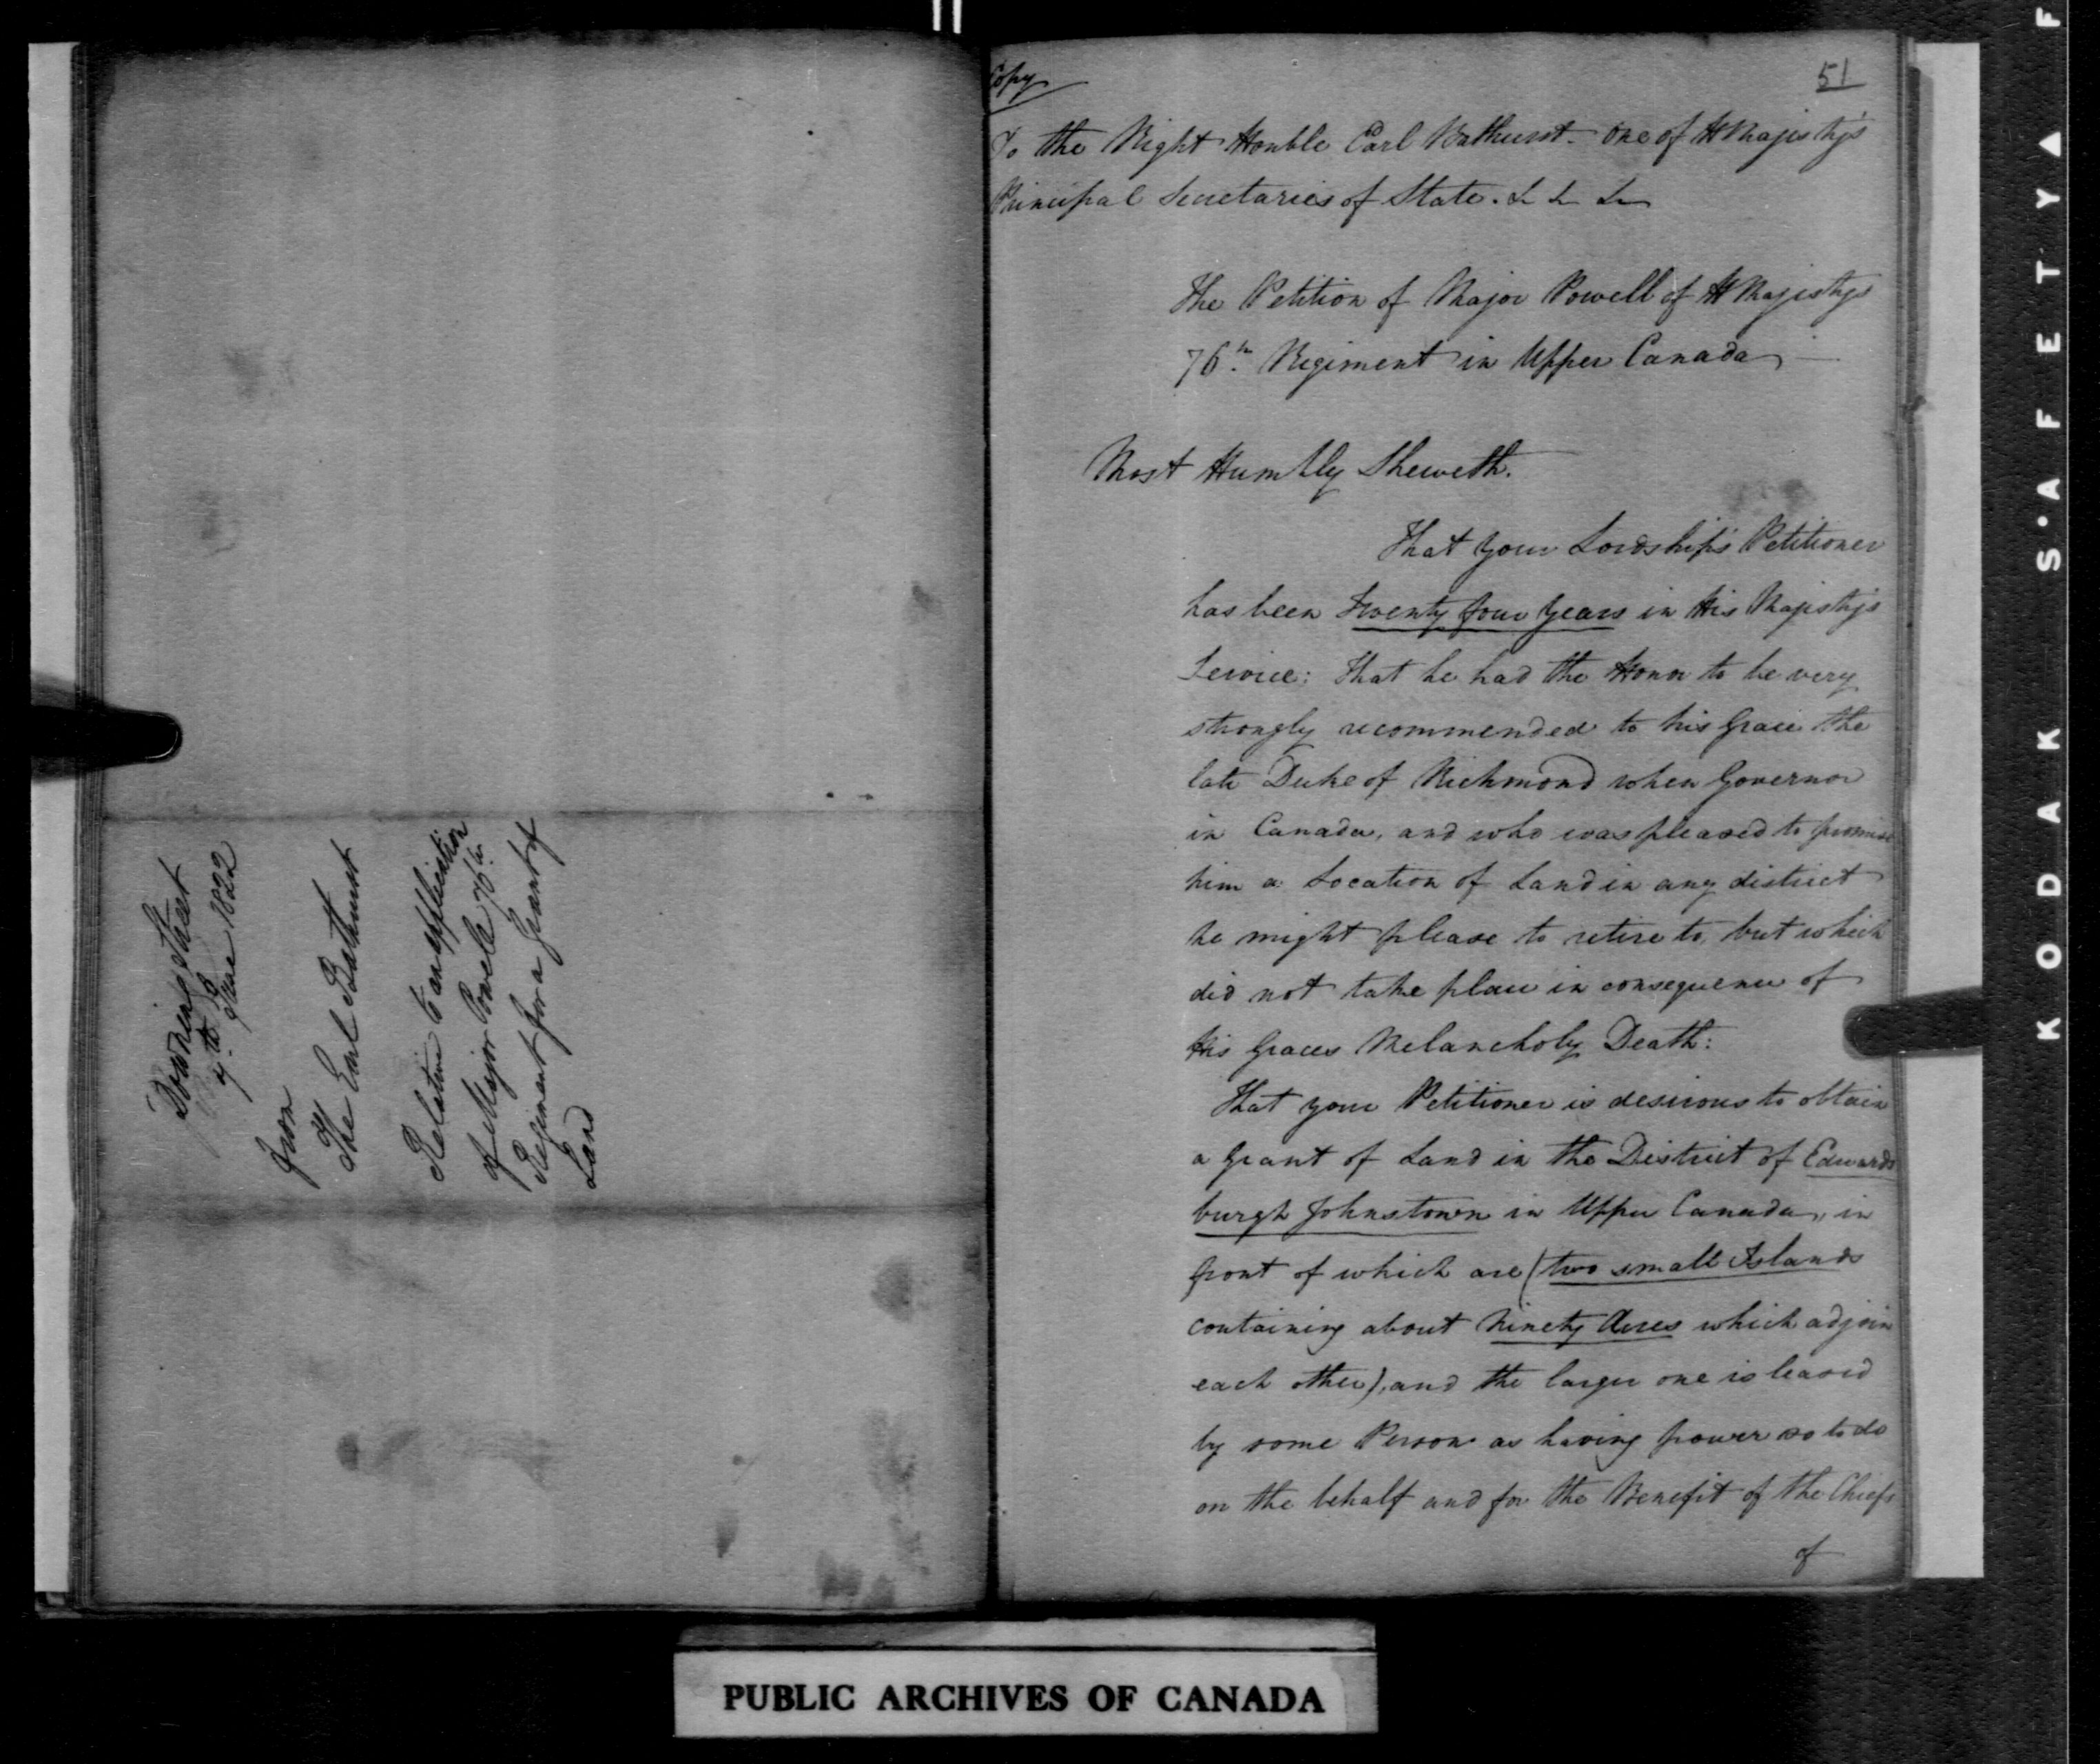 Downing Street
7th June 1822
from
The Earl Bathurst
Relative to an application
of Major Powele 76th
Regiment for a Grant of
Land
Copy
51
To the Right Honble Earl Bathurst. One of H Majesty's
Principal Secretaries of State. & & &
The Petition of Major Powell of H Majesty's
76th. Regiment in Upper Canada
Most Humbly Sheweth.
That your Lordship's Petitioner
has been Twenty four years in His Majesty's
Service: That he had the Honor to be very
strongly recommended to his Grace the
late Duke of Richmond when Governor
in Canada, and who was pleased to promise
him a Location of Land in any district
he might please to retire to, but which
did not take place in consequence of
His Graces Melancholy Death:
That your Petitioner is desirous to obtain
a Grant of Land in the District of Edwards
burgh Johnstown in Upper Canada, in
front of which are (two small Islands
containing about Ninety Acres which adjoin
each other), and the larger one is leased
by some Person as having power so to do
on the behalf and for the Benefit of the Chiefs
of
PUBLIC ARCHIVES OF CANADA
KODAK S·A F E T Y ▲ F